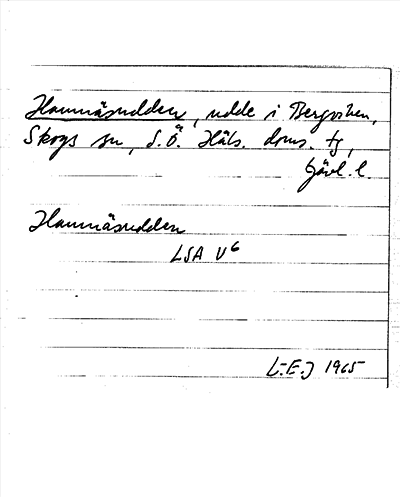 Hamnäsudden, udde i Bergviken,
Skogs sn, S.Ö. Häls. doms. tg,
Gävl. l.
Hamnäsudden
LSA V6
L-E.J 1965